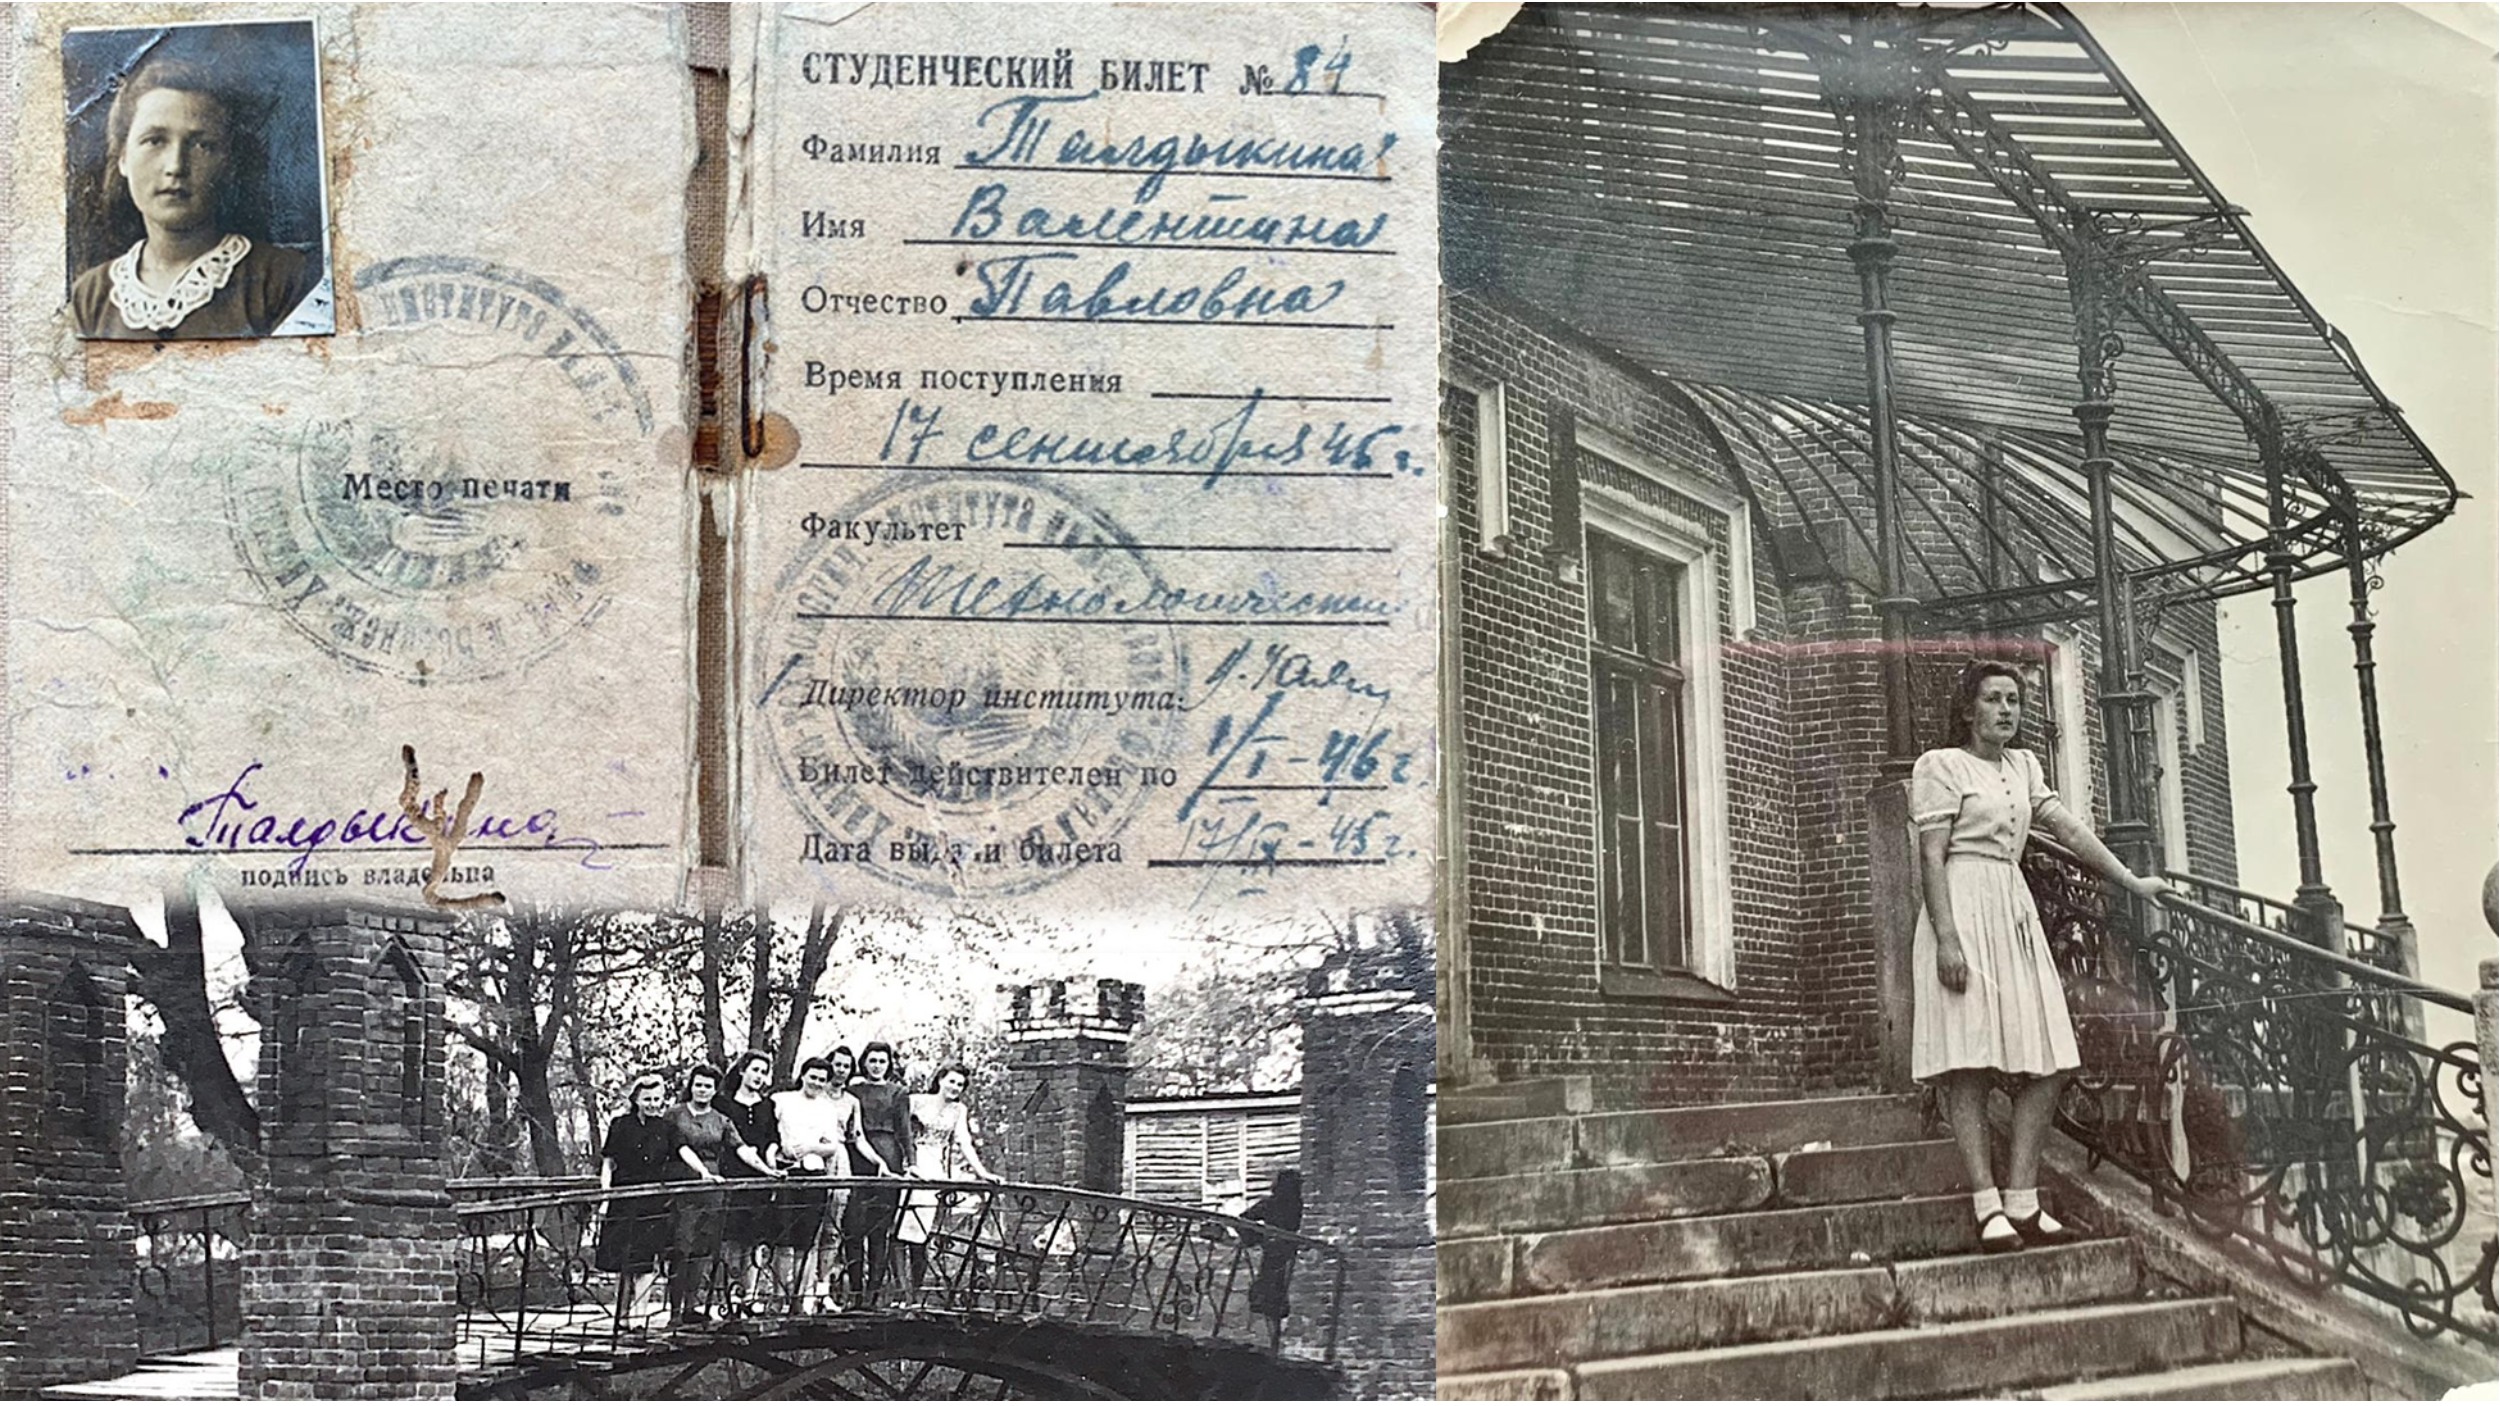 СТУДЕНЧЕСКИЙ БИЛЕТ № 84
Фамилия Талдыкина
Имя Валентина
Отчество Павловна
Время поступления
17 сентября 45 г.
Факультет
Технологический
Директор института:
Билет действителен по 1/I-46 г.
Дата выдачи билета 17/IX-45 г.
ИНСТИТУТА
Место печати
Талдыкина
подпись владельца
ИНСТИТУТА